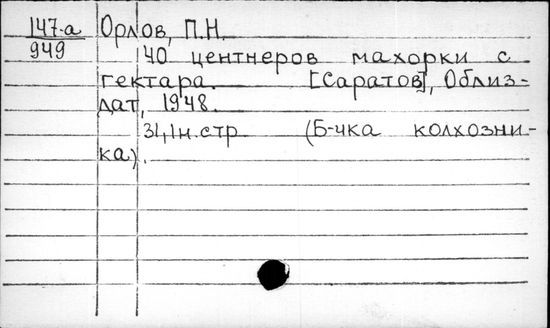 147-а Орлов, П.Н.
949 40 центнеров махорки с
гектара. [Саратов], Облиз-
дат, 1948.
31,1н.стр (Б-чка колхозни-
ка).